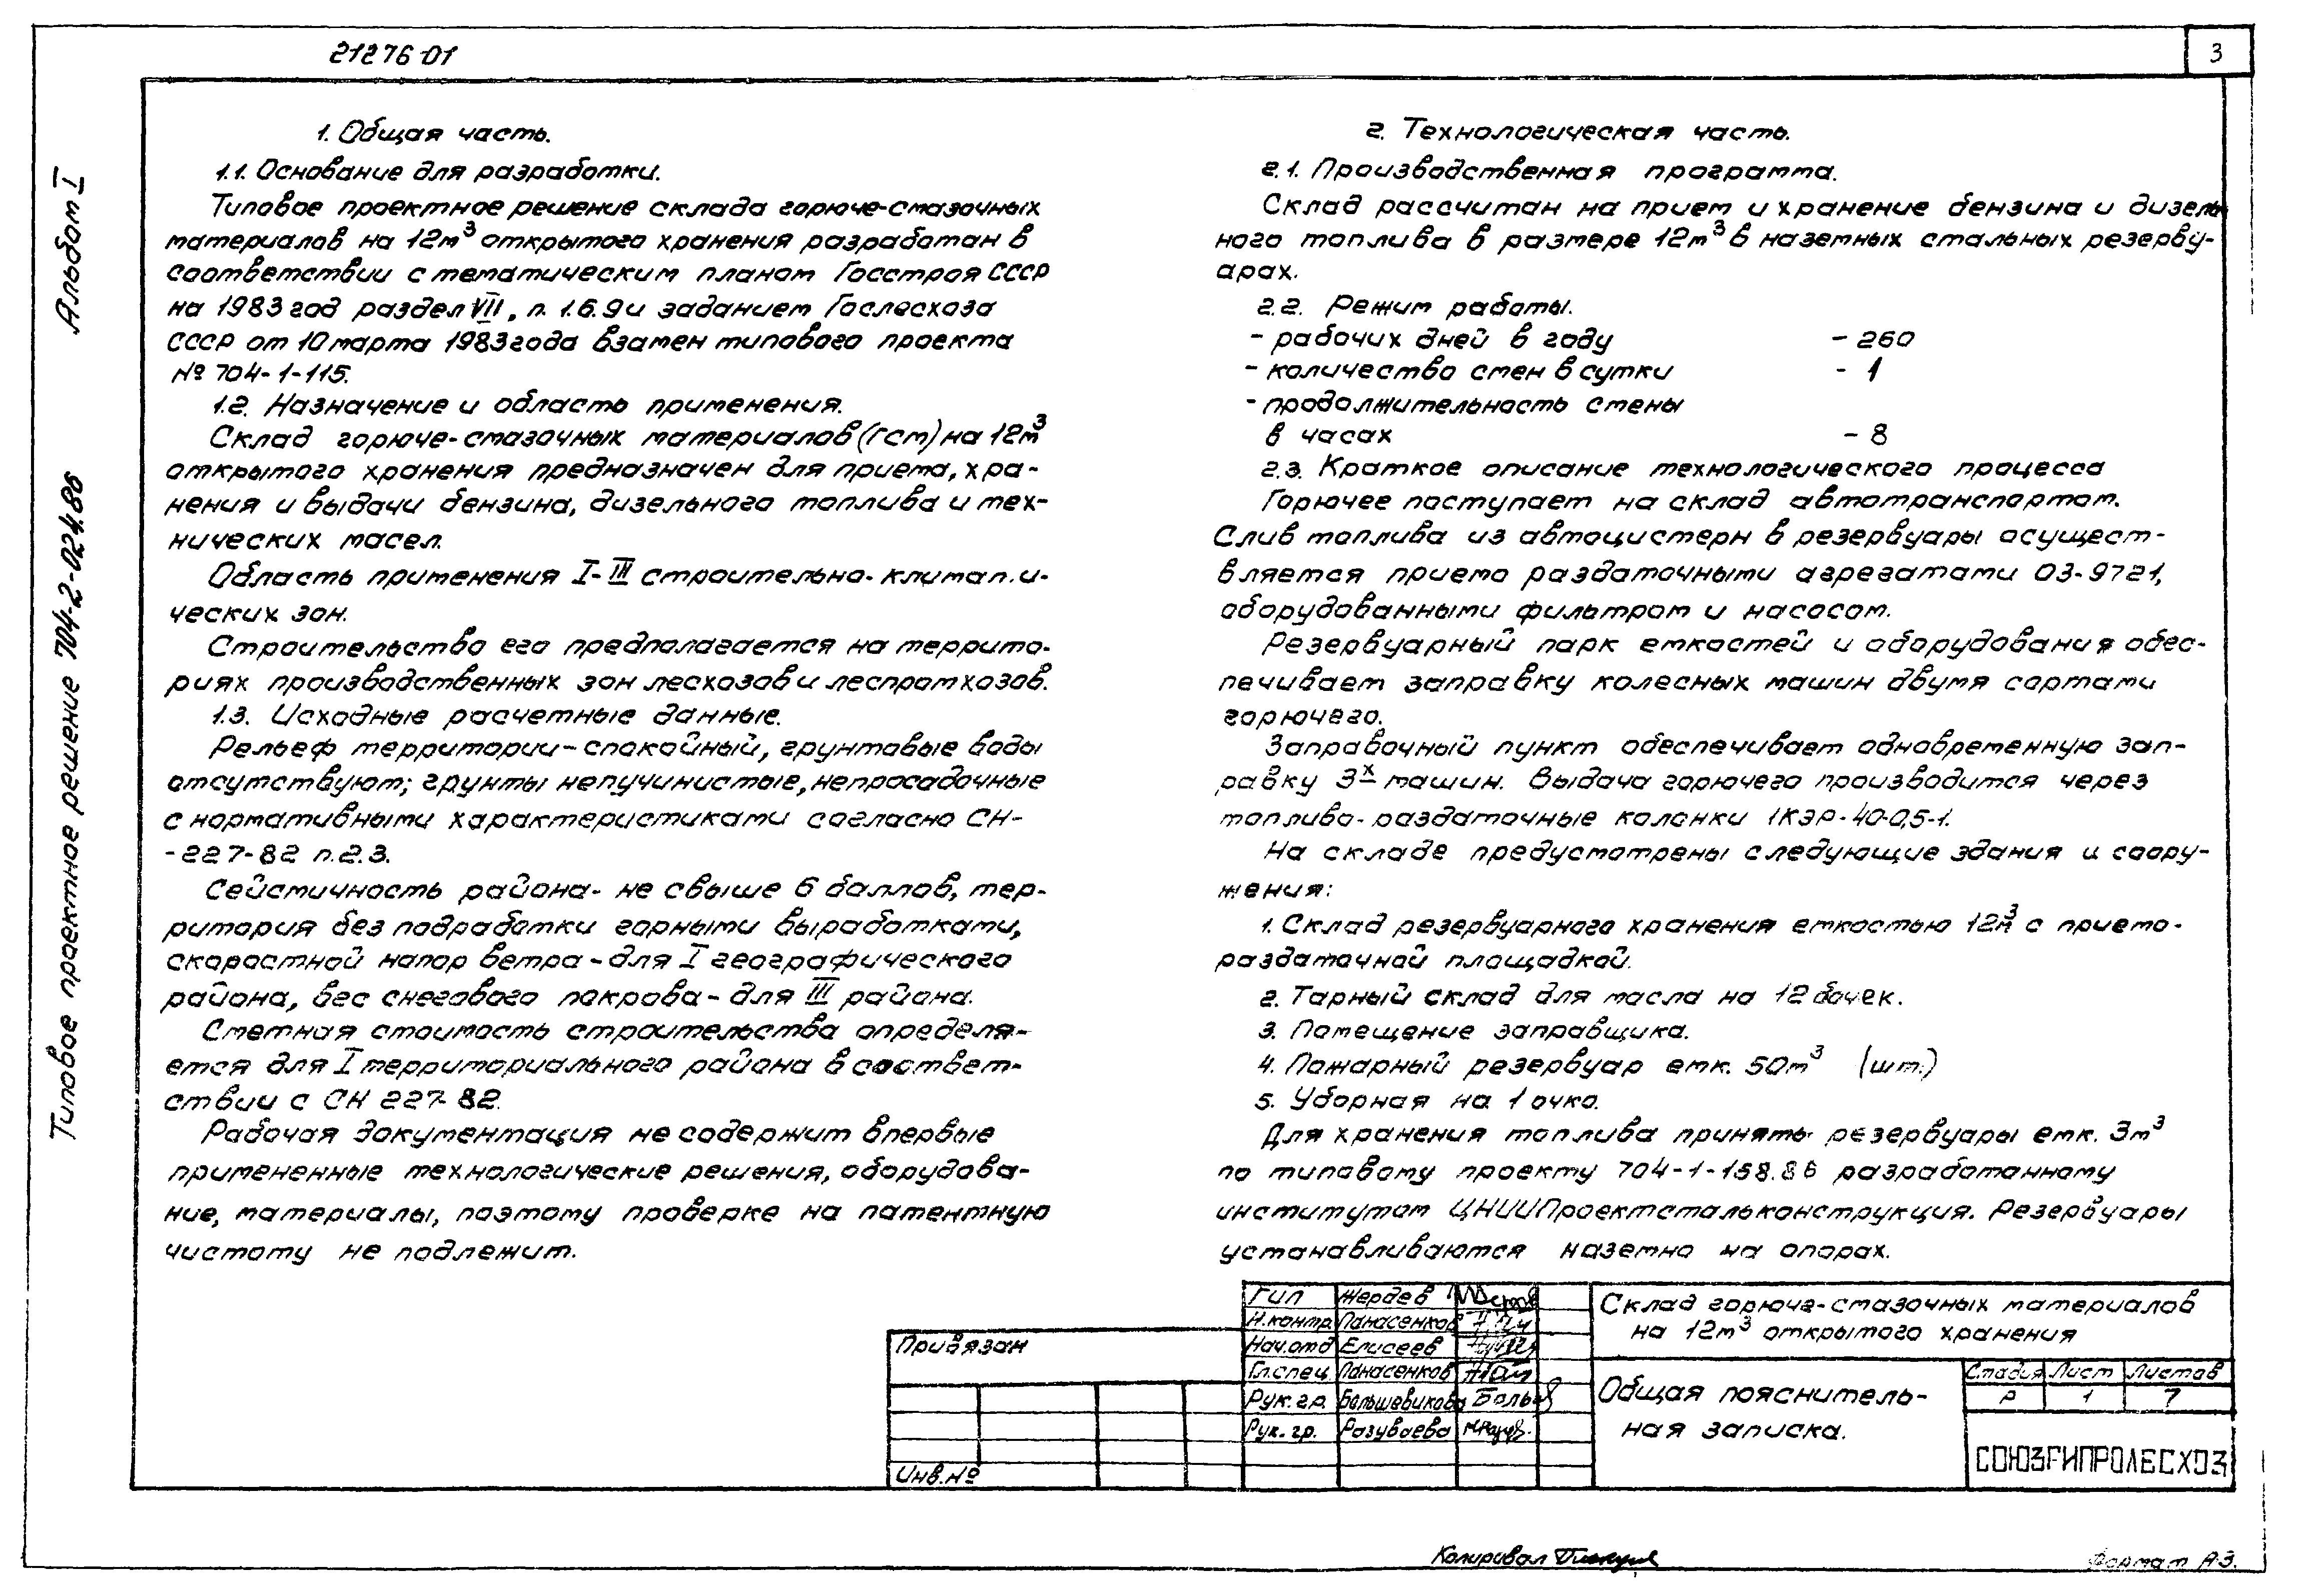 21276-01
3
Альбом I
Типовое проектное решение 704-2-024.86
1. Общая часть.
1.1. Основание для разработки.
Типовое проектное решение склада горюче-смазочных
материалов на 12м³ открытого хранения разработан в
соответствии с тематическим планом Госстроя СССР
на 1983 год раздел VII, п. 1.6.9 и заданием Гослесхоза
СССР от 10 марта 1983 года взамен типового проекта
№ 704-1-115.
1.2. Назначение и область применения.
Склад горюче-смазочных материалов (гсм) на 12м³
открытого хранения предназначен для приема, хра-
нения и выдачи бензина, дизельного топлива и тех-
нических масел.
Область применения I-III строительно-климати-
ческих зон.
Строительство его предполагается на террито-
риях производственных зон лесхозов и леспромхозов.
1.3. Исходные расчетные данные.
Рельеф территории - спокойный, грунтовые воды
отсутствуют; грунты непучинистые, непросадочные
с нормативными характеристиками согласно СН-
-227-82 п.2.3.
Сейсмичность района - не свыше 6 баллов, тер-
ритория без подработки горными выработками,
скоростной напор ветра - для I географического
района, вес снегового покрова - для III района.
Сметная стоимость строительства определя-
ется для I территориального района в соответ-
ствии с СН 227-82.
Рабочая документация не содержит впервые
примененные технологические решения, оборудова-
ние, материалы, поэтому проверке на патентную
чистоту не подлежит.
2. Технологическая часть.
2.1. Производственная программа.
Склад рассчитан на прием и хранение бензина и дизель
ного топлива в размере 12м³ в наземных стальных резерву-
арах.
2.2. Режим работы.
- рабочих дней в году - 260
- количество смен в сутки - 1
- продолжительность смены
в часах - 8
2.3. Краткое описание технологического процесса
Горючее поступает на склад автотранспортом.
Слив топлива из автоцистерн в резервуары осущест-
вляется приемо раздаточными агрегатами 03-9721,
оборудованными фильтром и насосом.
Резервуарный парк емкостей и оборудования обес-
печивает заправку колесных машин двумя сортами
горючего.
Заправочный пункт обеспечивает одновременную зап-
равку 3х машин. Выдача горючего производится через
топливо-раздаточные колонки 1КЭР-40-0,5-1.
На складе предусмотрены следующие здания и соору-
жения:
1. Склад резервуарного хранения емкостью 12м³ с приемо-
раздаточной площадкой.
2. Тарный склад для масла на 12 бочек.
3. Помещение заправщика.
4. Пожарный резервуар емк. 50м³ (шт.)
5. Уборная на 1 очко.
Для хранения топлива приняты резервуары емк. 3м³
по типовому проекту 704-1-158.86 разработанному
институтом ЦНИИПроектстальконструкция. Резервуары
устанавливаются наземно на опорах.
Привязан
Инв.№
Гип Жердев
Н.контр. Панасенков
Нач.отд Елисеев
Гл.спец. Панасенков
Рук.гр. Большевикова
Рук.гр. Разуваева
Склад горюче-смазочных материалов
на 12м³ открытого хранения
Общая пояснитель-
ная записка.
Стадия Лист Листов
Р 1 7
СОЮЗГИПРОЛЕСХОЗ
Копировал
Формат А3.